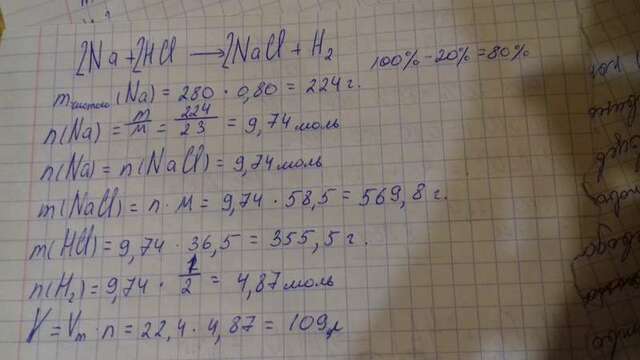 2Na + 2HCl → 2NaCl + H₂
100% - 20% = 80%
m чистого (Na) = 280 · 0,80 = 224 г.
n(Na) = m/M = 224/23 = 9,74 моль
n(Na) = n(NaCl) = 9,74 моль
m(NaCl) = n · M = 9,74 · 58,5 = 569,8 г.
m(HCl) = 9,74 · 36,5 = 355,5 г.
n(H₂) = 9,74 · 1/2 = 4,87 моль
V = Vm · n = 22,4 · 4,87 = 109л